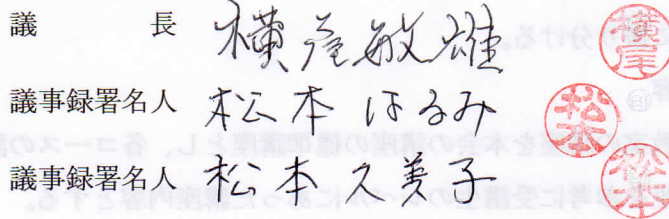 議長 横尾敏雄 横尾
議事録署名人 松本はるみ 松本
議事録署名人 松本久美子 松本